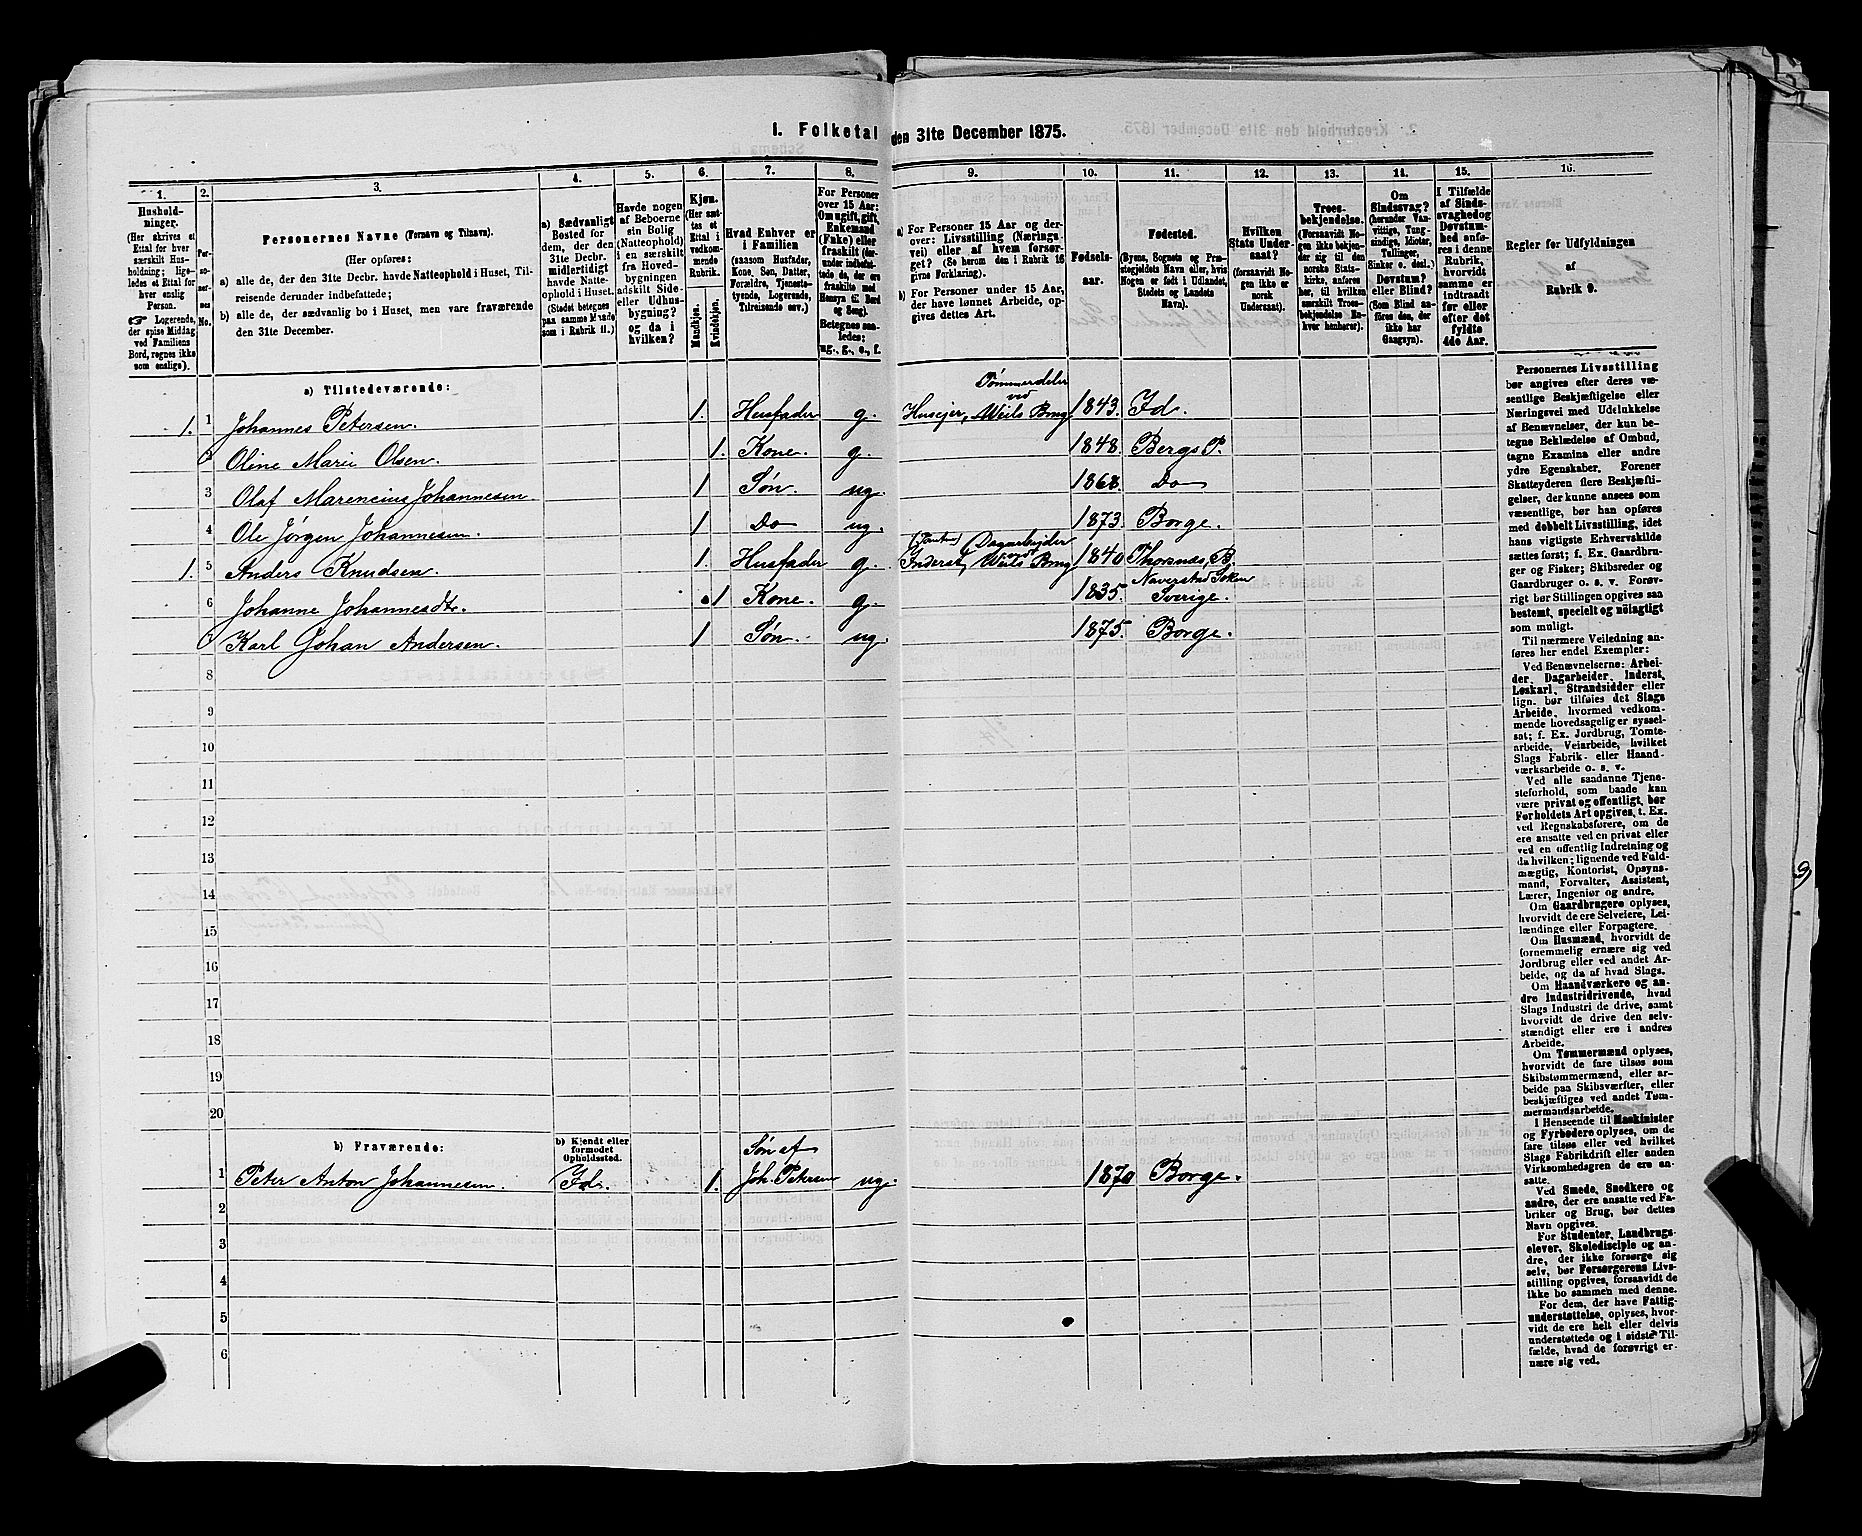 I. Folketal den 31te December 1875.
1. 2. 3. 4. 5. 6. 7. 8. 9. 10. 11. 12. 13. 14. 15. 16.
Hushold-
ninger.
(Her skrives et
Ettal for hver
særskilt Hus-
holdning; lige-
ledes et Ettal for
hver enslig
Person.
☞ Logerende,
der spise Middag
ved Familiens
Bord, regnes ikke
som enslige).
Per-
so-
ner-
nes
No.
Personernes Navne (Fornavn og Tilnavn).
(Her opføres:
a) alle de, der den 31te Decbr. havde Natteophold i Huset, Til-
reisende derunder indbefattede;
b) alle de, der sædvanlig bo i Huset, men vare fraværende
den 31te December.
a) Sædvanligt
Bosted for
dem, der den
31te Decbr.
midlertidigt
havde Natte-
ophold i Huset.
(Stedet betegnes
paa samme Maade
som i Rubrik 11.)
Havde nogen
af Beboerne
sin Bolig
(Natteophold)
i en særskilt
fra Hoved-
bygningen
adskilt Side-
eller Udhus-
bygning?
og da i
hvilken?
Kjøn.
(Her sæt-
tes et
Ettal i
vedkom-
mende
Rubrik.
Mandkjøn.
Kvindekjøn.
Hvad Enhver er
i Familien
(saasom Husfader,
Kone, Søn, Datter,
Forældre, Tjeneste-
tyende, Logerende,
Tilreisende osv.)
For Personer
over 15 Aar:
Om ugift, gift,
Enkemand
(Enke) eller
fraskilt (der-
under indbefat-
tede de, der ere
fraskilte med
Hensyn til Bord
og Seng).
Betegnes saa-
ledes:
ug., g., e., f.
a) For Personer 15 Aar og der-
over: Livsstilling (Nærings-
vei) eller af hvem forsør-
get? (Se herom den i Rubrik 16
givne Forklaring).
b) For Personer under 15 Aar,
der have lønnet Arbeide, op-
gives dettes Art.
Fødsels-
aar.
Fødested.
(Byens, Sognets og Præ-
stegjeldets Navn eller, hvis
Nogen er født i Udlandet,
Stedets og Landets
Navn).
Hvilken
Stats Under-
saat?
(forsaavidt No-
gen ikke er
norsk
Undersaat).
Troes-
bekjendelse.
(Forsaavidt No-
gen ikke bekjen-
der sig til den
norske Stats-
kirke, anføres
her, til hvilken
særskilt Troes-
bekjendelse En-
hver henhører).
Om
Sindssvag?
(herunder Van-
vittige, Tung-
sindige, Idioter,
Tullinger,
Sinker o. desl.)
Døvstum?
eller Blind?
(Som Blind an-
føres den, der
ikke har
Gangsyn).
I Tilfælde
af Sinds-
svaghed og
Døvstum-
hed anfø-
res i denne
Rubrik,
hvorvidt
samme er
indtraadt
før eller
efter det
fyldte
4de Aar.
Regler for Udfyldningen
af
Rubrik 9.
a) Tilstedeværende:
Tømmerdeler
ved
1. 1 Johannes Petersen. 1. Husfader g. Husejer, Weils Brug 1843. Id.
2 Oline Marie Olsen. 1. Kone. g. 1848. Bergs P.
3 Olaf Marencius Johannesen. 1 Søn. ug. 1868. Do
4 Ole Jørgen Johannesen. 1 Do ug. 1873. Borge.
Dagarbejder
ved
1. 5 Anders Knudsen. 1. Husfader g. Inderst, Weils Brug 1840 Thorsnæs, B.
Naverstad Soken
6 Johanne Johannesdtr. 1 Kone. g. 1835. Sverige.
7 Karl Johan Andersen. 1 Søn. ug. 1875. Borge.
8
9
10
11
12
13
14
15
16
17
18
19
20
b) Fraværende:
b) Kjendt eller
formodet
Opholdssted.
Søn af
1 Peter Anton Johannesen Id. 1. Joh. Petersen ug. 1870 Borge.
2
3
4
5
6
Personernes Livsstilling
bør angives efter deres væ-
sentlige Beskjæftigelse eller
Næringsvei med Udelukkelse
af Benævnelser, der kun be-
tegne Beklædelse af Ombud,
tagne Examina eller andre
ydre Egenskaber. Forener
Skatteyderen flere Beskjæfti-
gelser, der kunne ansees som
væsentlige, bør han opføres
med dobbelt Livsstilling, idet
hans vigtigste Erhvervskilde
sættes først; f. Ex. Gaardbru-
ger og Fisker; Skibsreder og
Gaardbruger o. s. v. Forøv-
rigt bør Stillingen opgives saa
bestemt, specielt og nøiagtigt
som muligt.
Til nærmere Veiledning an-
føres her endel Exempler:
Ved Benævnelserne: Arbei-
der, Dagarbeider, Inderst,
Løskarl, Strandsidder eller
lign. bør tilføies det Slags
Arbeide, hvormed vedkom-
mende hovedsagelig er syssel-
sat; f. Ex. Jordbrug, Tomte-
arbeide, Veiarbeide, hvilket
Slags Fabrik- eller Haand-
værksarbeide o. s. v.
Ved alle saadanne Tjene-
steforhold, som baade kan
være privat og offentligt, bør
Forholdets Art opgives, t. Ex.
ved Regnskabsførere, om de
ere ansatte ved en privat eller
ved en offentlig Indretning og
da hvilken; lignende ved Fuld-
mægtig, Kontorist, Opsyns-
mand, Forvalter, Assistent,
Lærer, Ingeniør og andre.
Om Gaardbrugere oplyses,
hvorvidt de ere Selveiere, Lei-
lændinge eller Forpagtere.
Om Husmænd, hvorvidt de
fornemmelig ernære sig ved
Jordbrug eller ved andet Ar-
beide, og da af hvad Slags.
Om Haandværkere og an-
dre Industridrivende, hvad
Slags Industri de drive, samt
hvorvidt de drive den selv-
stændigt eller ere i andres
Arbeide.
Om Tømmermænd oplyses,
hvorvidt de fare tilsøs som
Skibstømmermænd, eller ar-
beide paa Skibsværfter, eller
beskjæftiges ved andet Tøm-
mermandsarbeide.
I Henseende til Maskinister
og Fyrbødere oplyses, om de
fare tilsøs eller ved hvilket
Slags Fabrikdrift eller anden
Virksomhedsgren de ere an-
satte.
Ved Smede, Snedkere og
andre, der ere ansatte ved Fa-
briker og Brug, bør dettes
Navn opgives.
For Studenter, Landbrugs-
elever, Skoledisciple og an-
dre, der ikke forsørge sig
selv, bør Forsørgerens Livs-
stilling opgives, forsaavidt de
ikke bo sammen med denne.
For dem, der have Fattig-
understøttelse, oplyses, hvor-
vidt de ere helt eller delvis
understøttede og i sidste Til-
fælde, hvad de forøvrigt er-
nære sig ved.